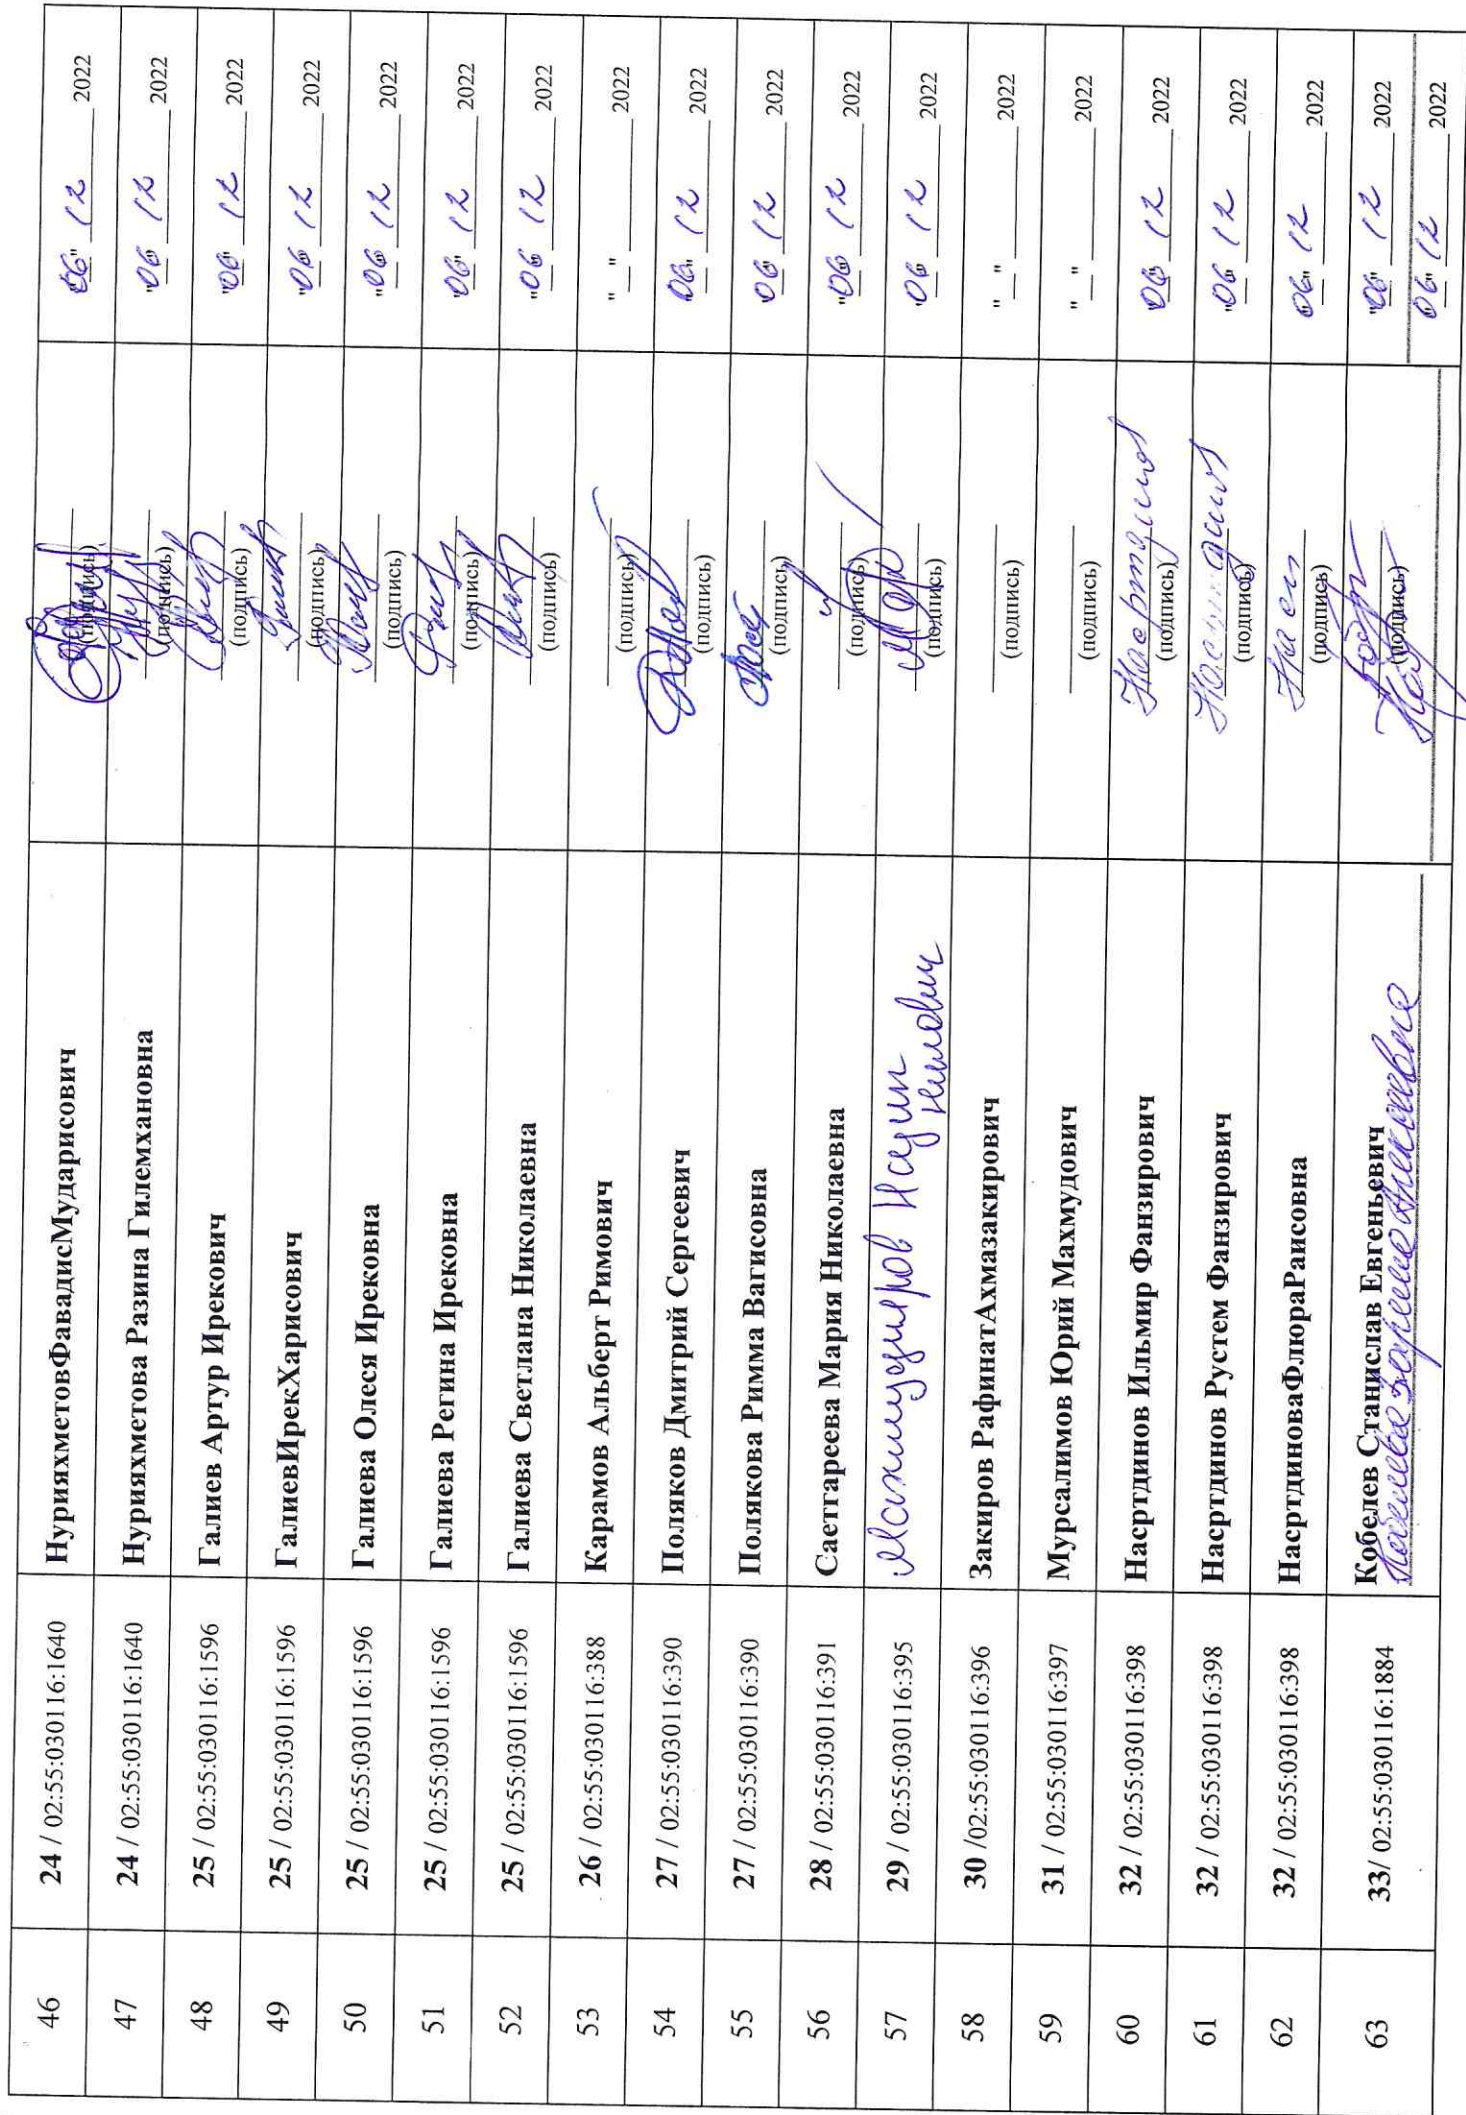 46 24 / 02:55:030116:1640 НурияхметовФавадисМударисович (подпись) "06" 12 2022
47 24 / 02:55:030116:1640 Нурияхметова Разина Гилемхановна (подпись) "06" 12 2022
48 25 / 02:55:030116:1596 Галиев Артур Ирекович (подпись) "06" 12 2022
49 25 / 02:55:030116:1596 ГалиевИрекХарисович (подпись) "06" 12 2022
50 25 / 02:55:030116:1596 Галиева Олеся Ирековна (подпись) "06" 12 2022
51 25 / 02:55:030116:1596 Галиева Регина Ирековна (подпись) "06" 12 2022
52 25 / 02:55:030116:1596 Галиева Светлана Николаевна (подпись) "06" 12 2022
53 26 / 02:55:030116:388 Карамов Альберт Римович (подпись) "__" ______ 2022
54 27 / 02:55:030116:390 Поляков Дмитрий Сергеевич (подпись) "06" 12 2022
55 27 / 02:55:030116:390 Полякова Римма Вагисовна (подпись) "06" 12 2022
56 28 / 02:55:030116:391 Саетгареева Мария Николаевна (подпись) "06" 12 2022
57 29 / 02:55:030116:395 (подпись) "06" 12 2022
58 30 /02:55:030116:396 Закиров РафинатАхмазакирович (подпись) "__" ______ 2022
59 31 / 02:55:030116:397 Мурсалимов Юрий Махмудович (подпись) "__" ______ 2022
60 32 / 02:55:030116:398 Насртдинов Ильмир Фанзирович (подпись) "06" 12 2022
61 32 / 02:55:030116:398 Насртдинов Рустем Фанзирович (подпись) "06" 12 2022
62 32 / 02:55:030116:398 НасртдиноваФлюраРаисовна (подпись) "06" 12 2022
63 33/ 02:55:030116:1884 Кобелев Станислав Евгеньевич (подпись) "06" 12 2022
06 12 2022